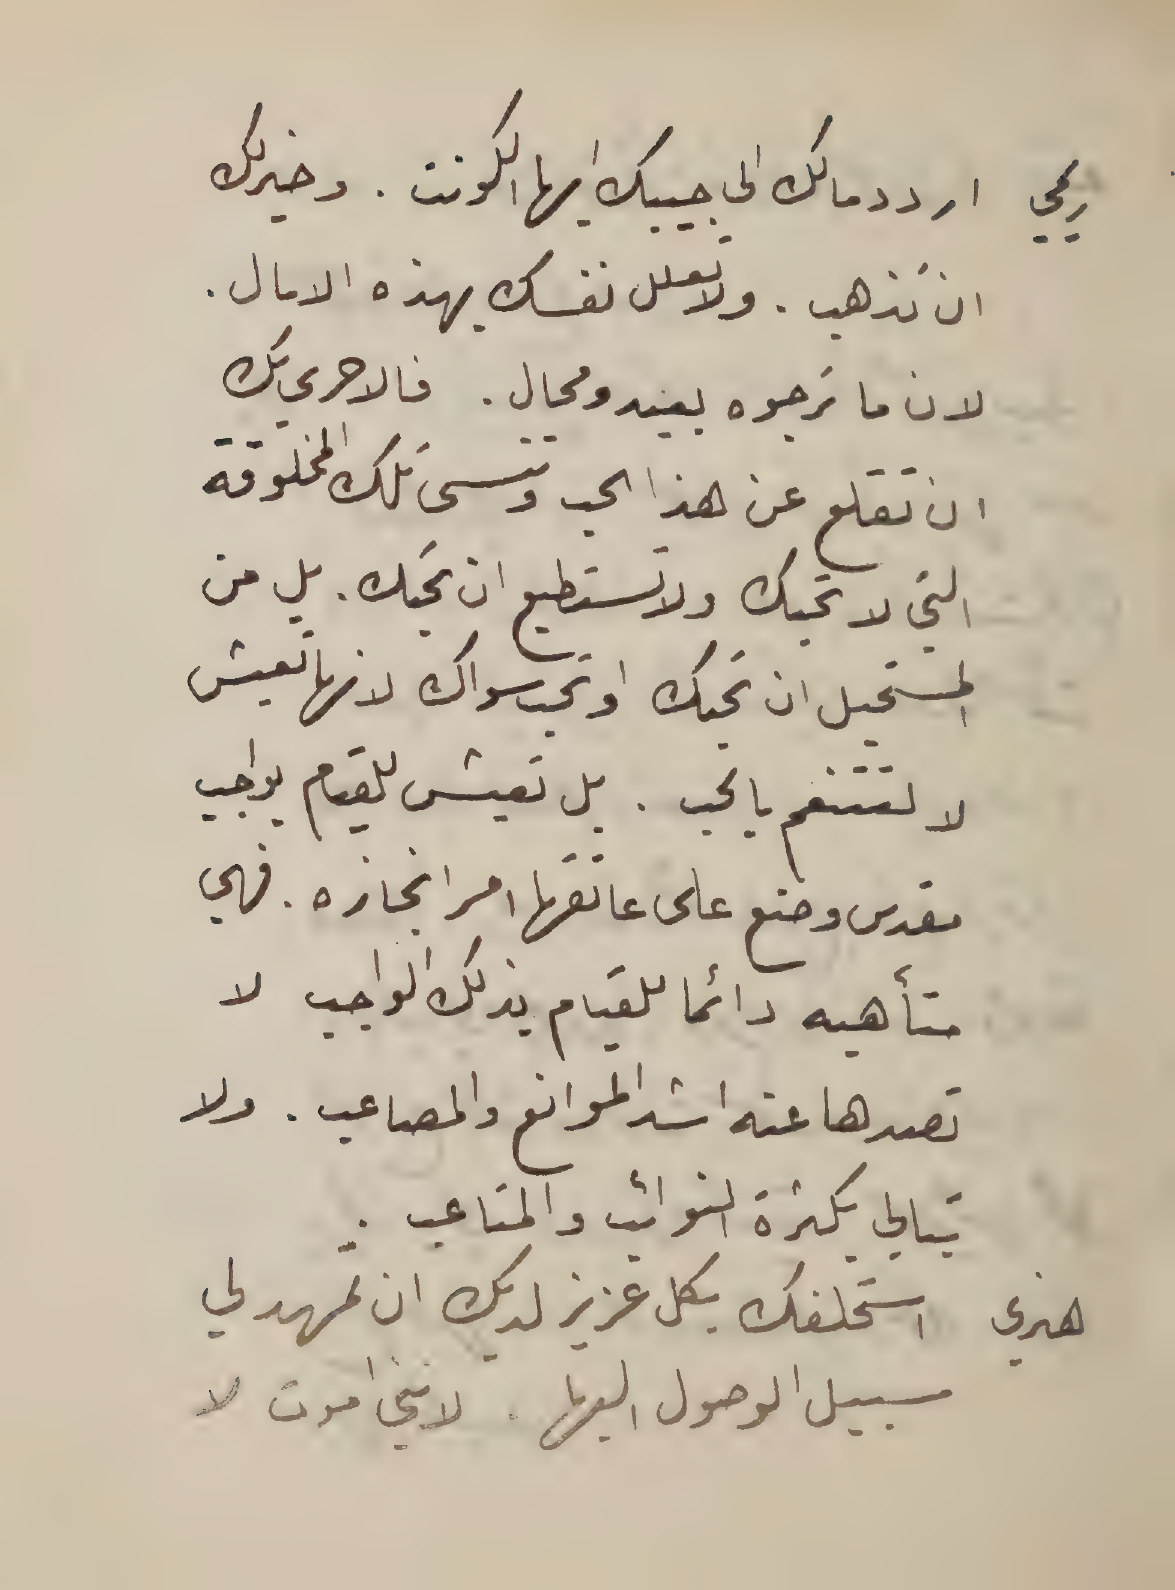 ريمي اردد مالك الى جيبك ايها الكونت . وخير لك
ان تذهب . ولا تعلل نفسك بهذه الامال .
لان ما ترجوه بعيد ومحال . فالاحرى بك
ان تقلع عن هذا الحب وتنسى تلك المخلوقة
التي لا تحبك ولا تستطيع ان تحبك . بل من
المستحيل ان تحبك او تحب سواك لانها تعيش
لا لتتنعم بالحب . بل تعيش للقيام بواجب
مقدس وضع على عاتقها امر انجازه . فهي
متأهبه دائما للقيام بذلك الواجب لا
تصدها عنه اشد الموانع والمصاعب . ولا
تبالي بكثرة النوائب والمتاعب .
هنري استحلفك بكل عزيز لديك ان تمهد لي
سبيل الوصول اليها . لانني اموت لا